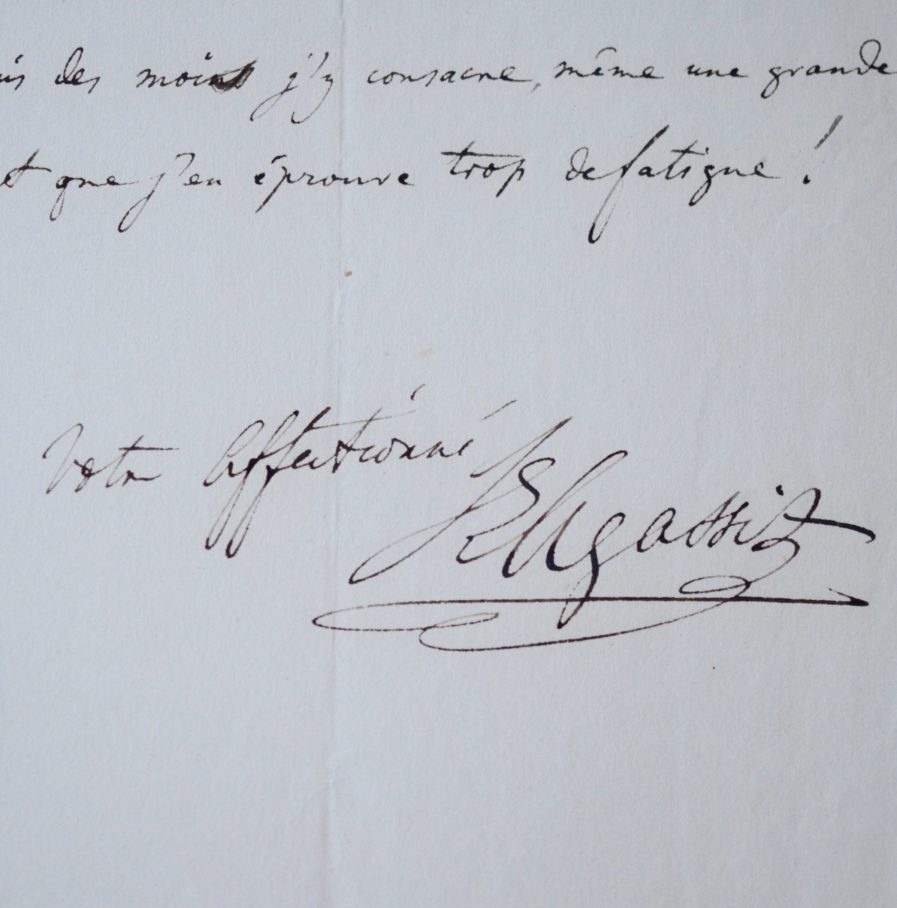 des mois j'y consacre, même une grande
et que j'en éprouve trop de fatigue !
Votre affectionné
Agassiz